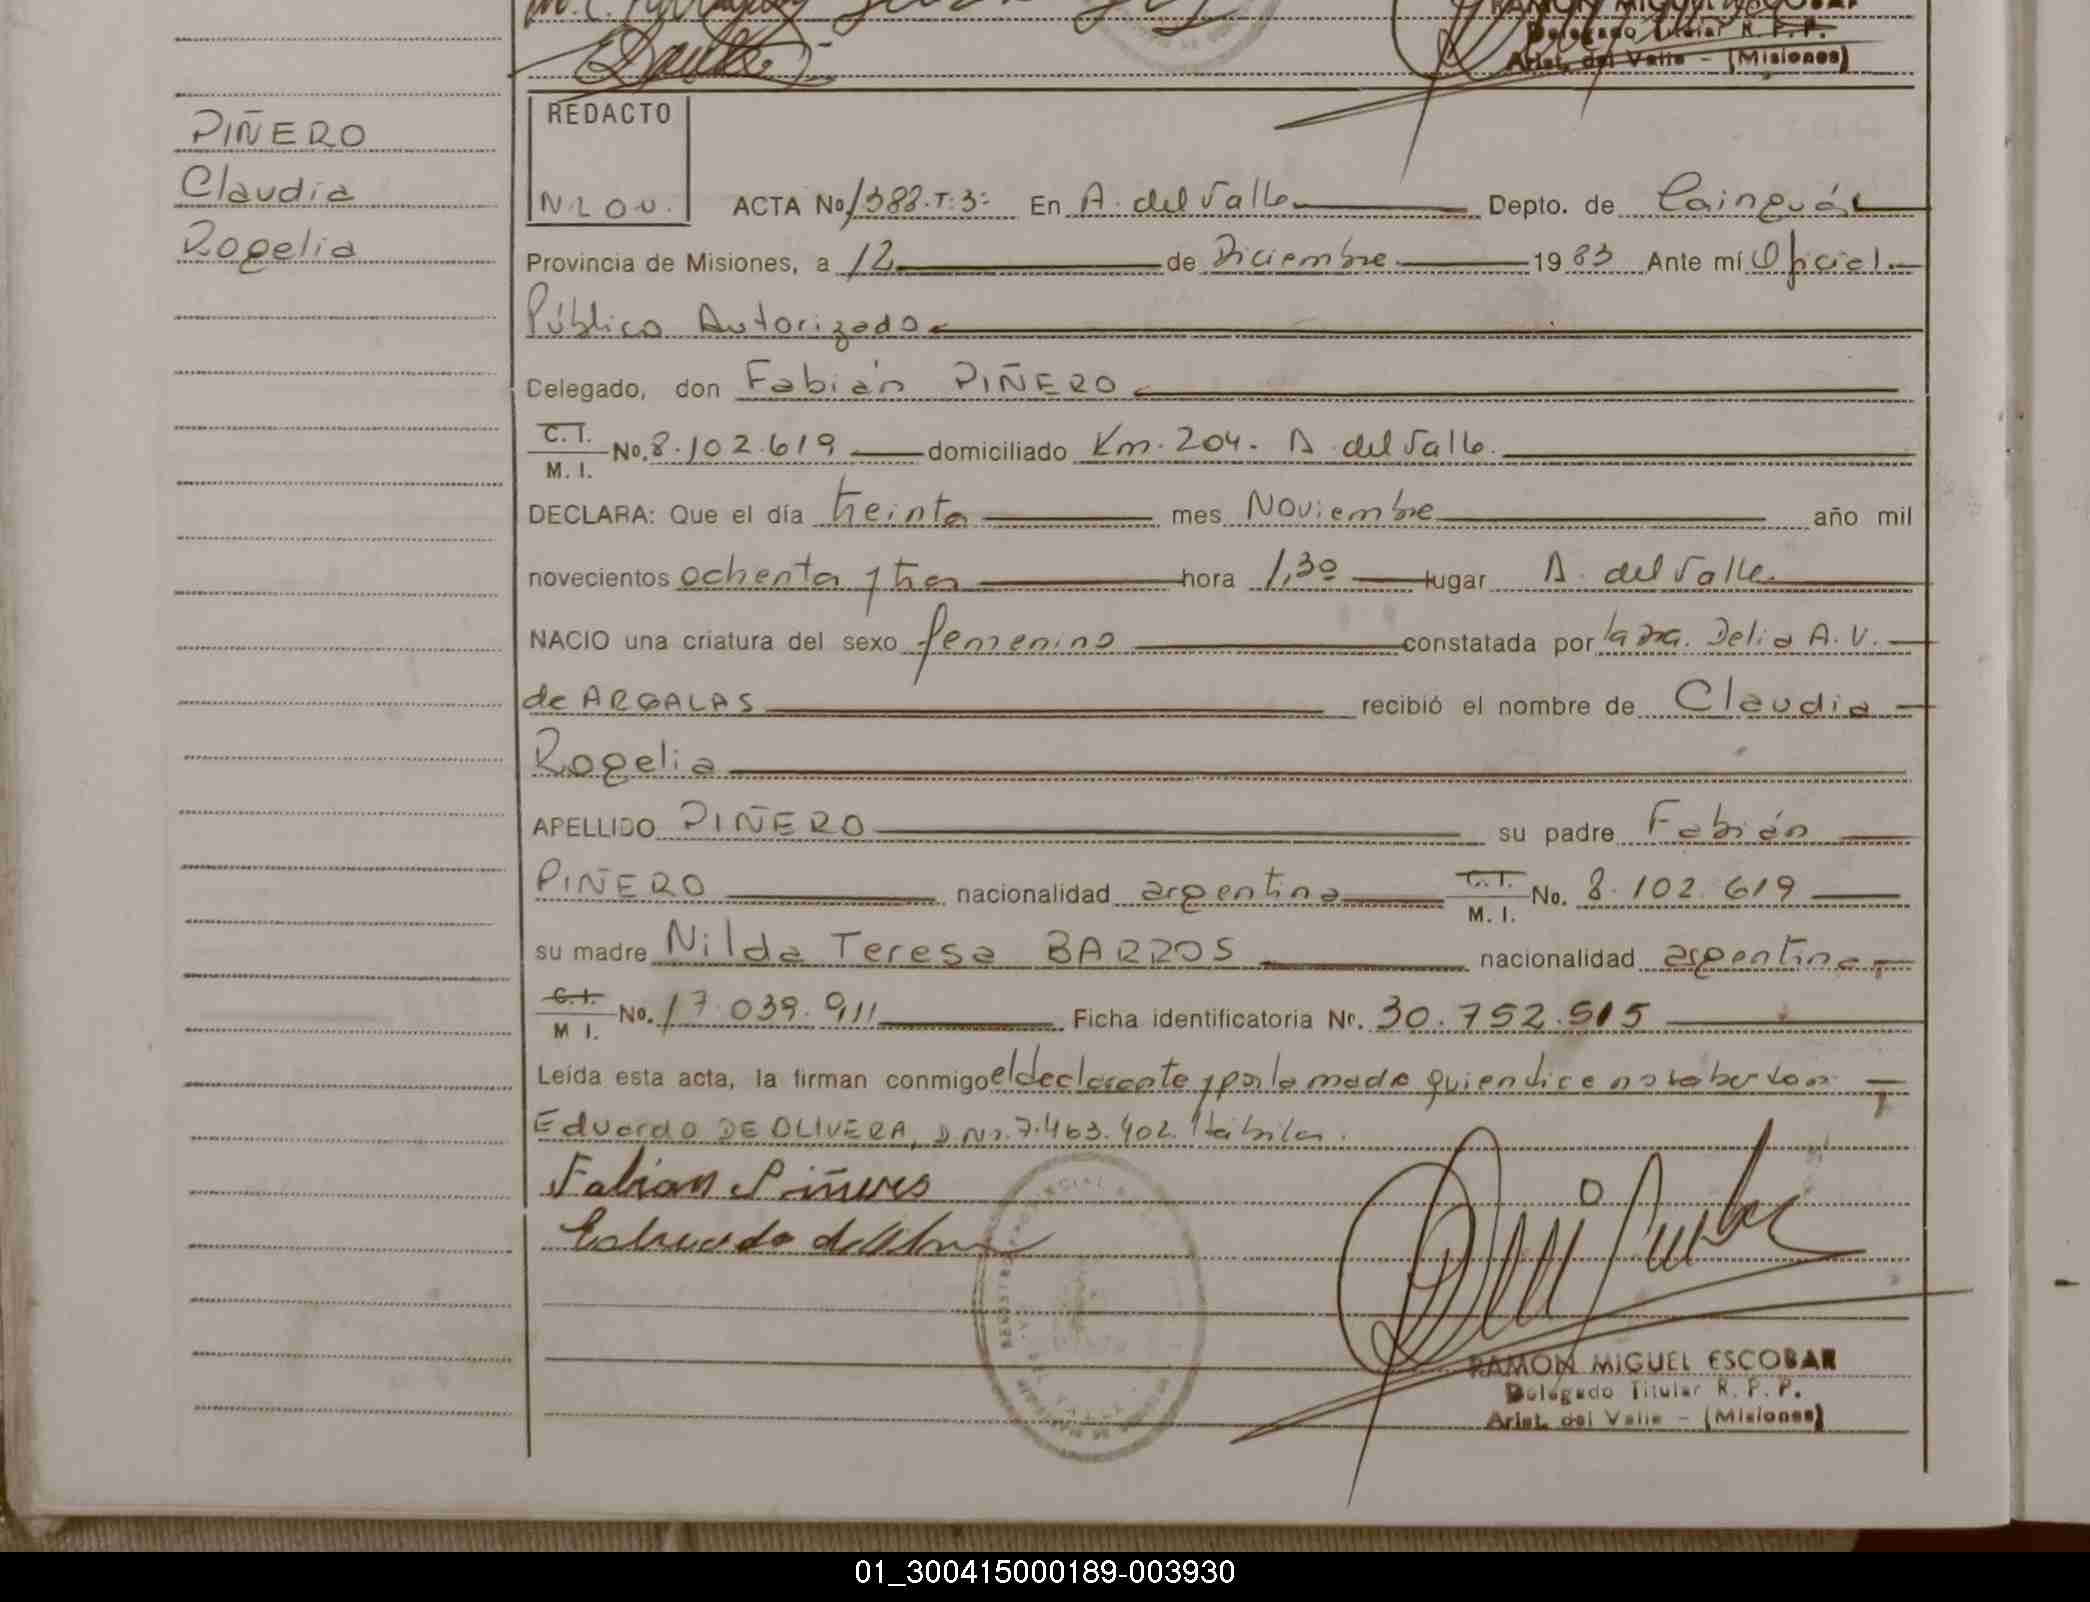 RAMON MIGUEL ESCOBAR
Delegado Titular R. P. P.
Arist. del Valle - (Misiones)
PIÑERO
Claudia
Rogelia
REDACTO
N.L.O.V.
ACTA No 1388.T:3: En A. del Valle Depto. de Cainguás
Provincia de Misiones, a 12 de Diciembre 1983 Ante mí Oficial
Público Autorizado
Celegado, don Fabián PIÑERO
C.I. M. I. No. 8.102.619 domiciliado Km. 204. A. del Valle.
DECLARA: Que el día treinta mes Noviembre año mil
novecientos ochenta y tres hora 1,30 lugar A. del Valle
NACIO una criatura del sexo femenino constatada por la Dra. Delia A. V.
de ARGALAS recibió el nombre de Claudia
Rogelia
APELLIDO PIÑERO su padre Fabián
PIÑERO nacionalidad argentina C.I. M. I. No. 8.102.619
su madre Nilda Teresa BARROS nacionalidad argentina
C.I. M I. No. 17.039.911 Ficha identificatoria Nº. 30.752.515
Leída esta acta, la firman conmigo el declarante y por la madre quien dice no saber
Eduardo DE OLIVERA, D.No. 7.463.402. Hábiles.
Fabian Piñero
RAMON MIGUEL ESCOBAR
Delegado Titular R. P. P.
Arist. del Valle - (Misiones)
01_300415000189-003930